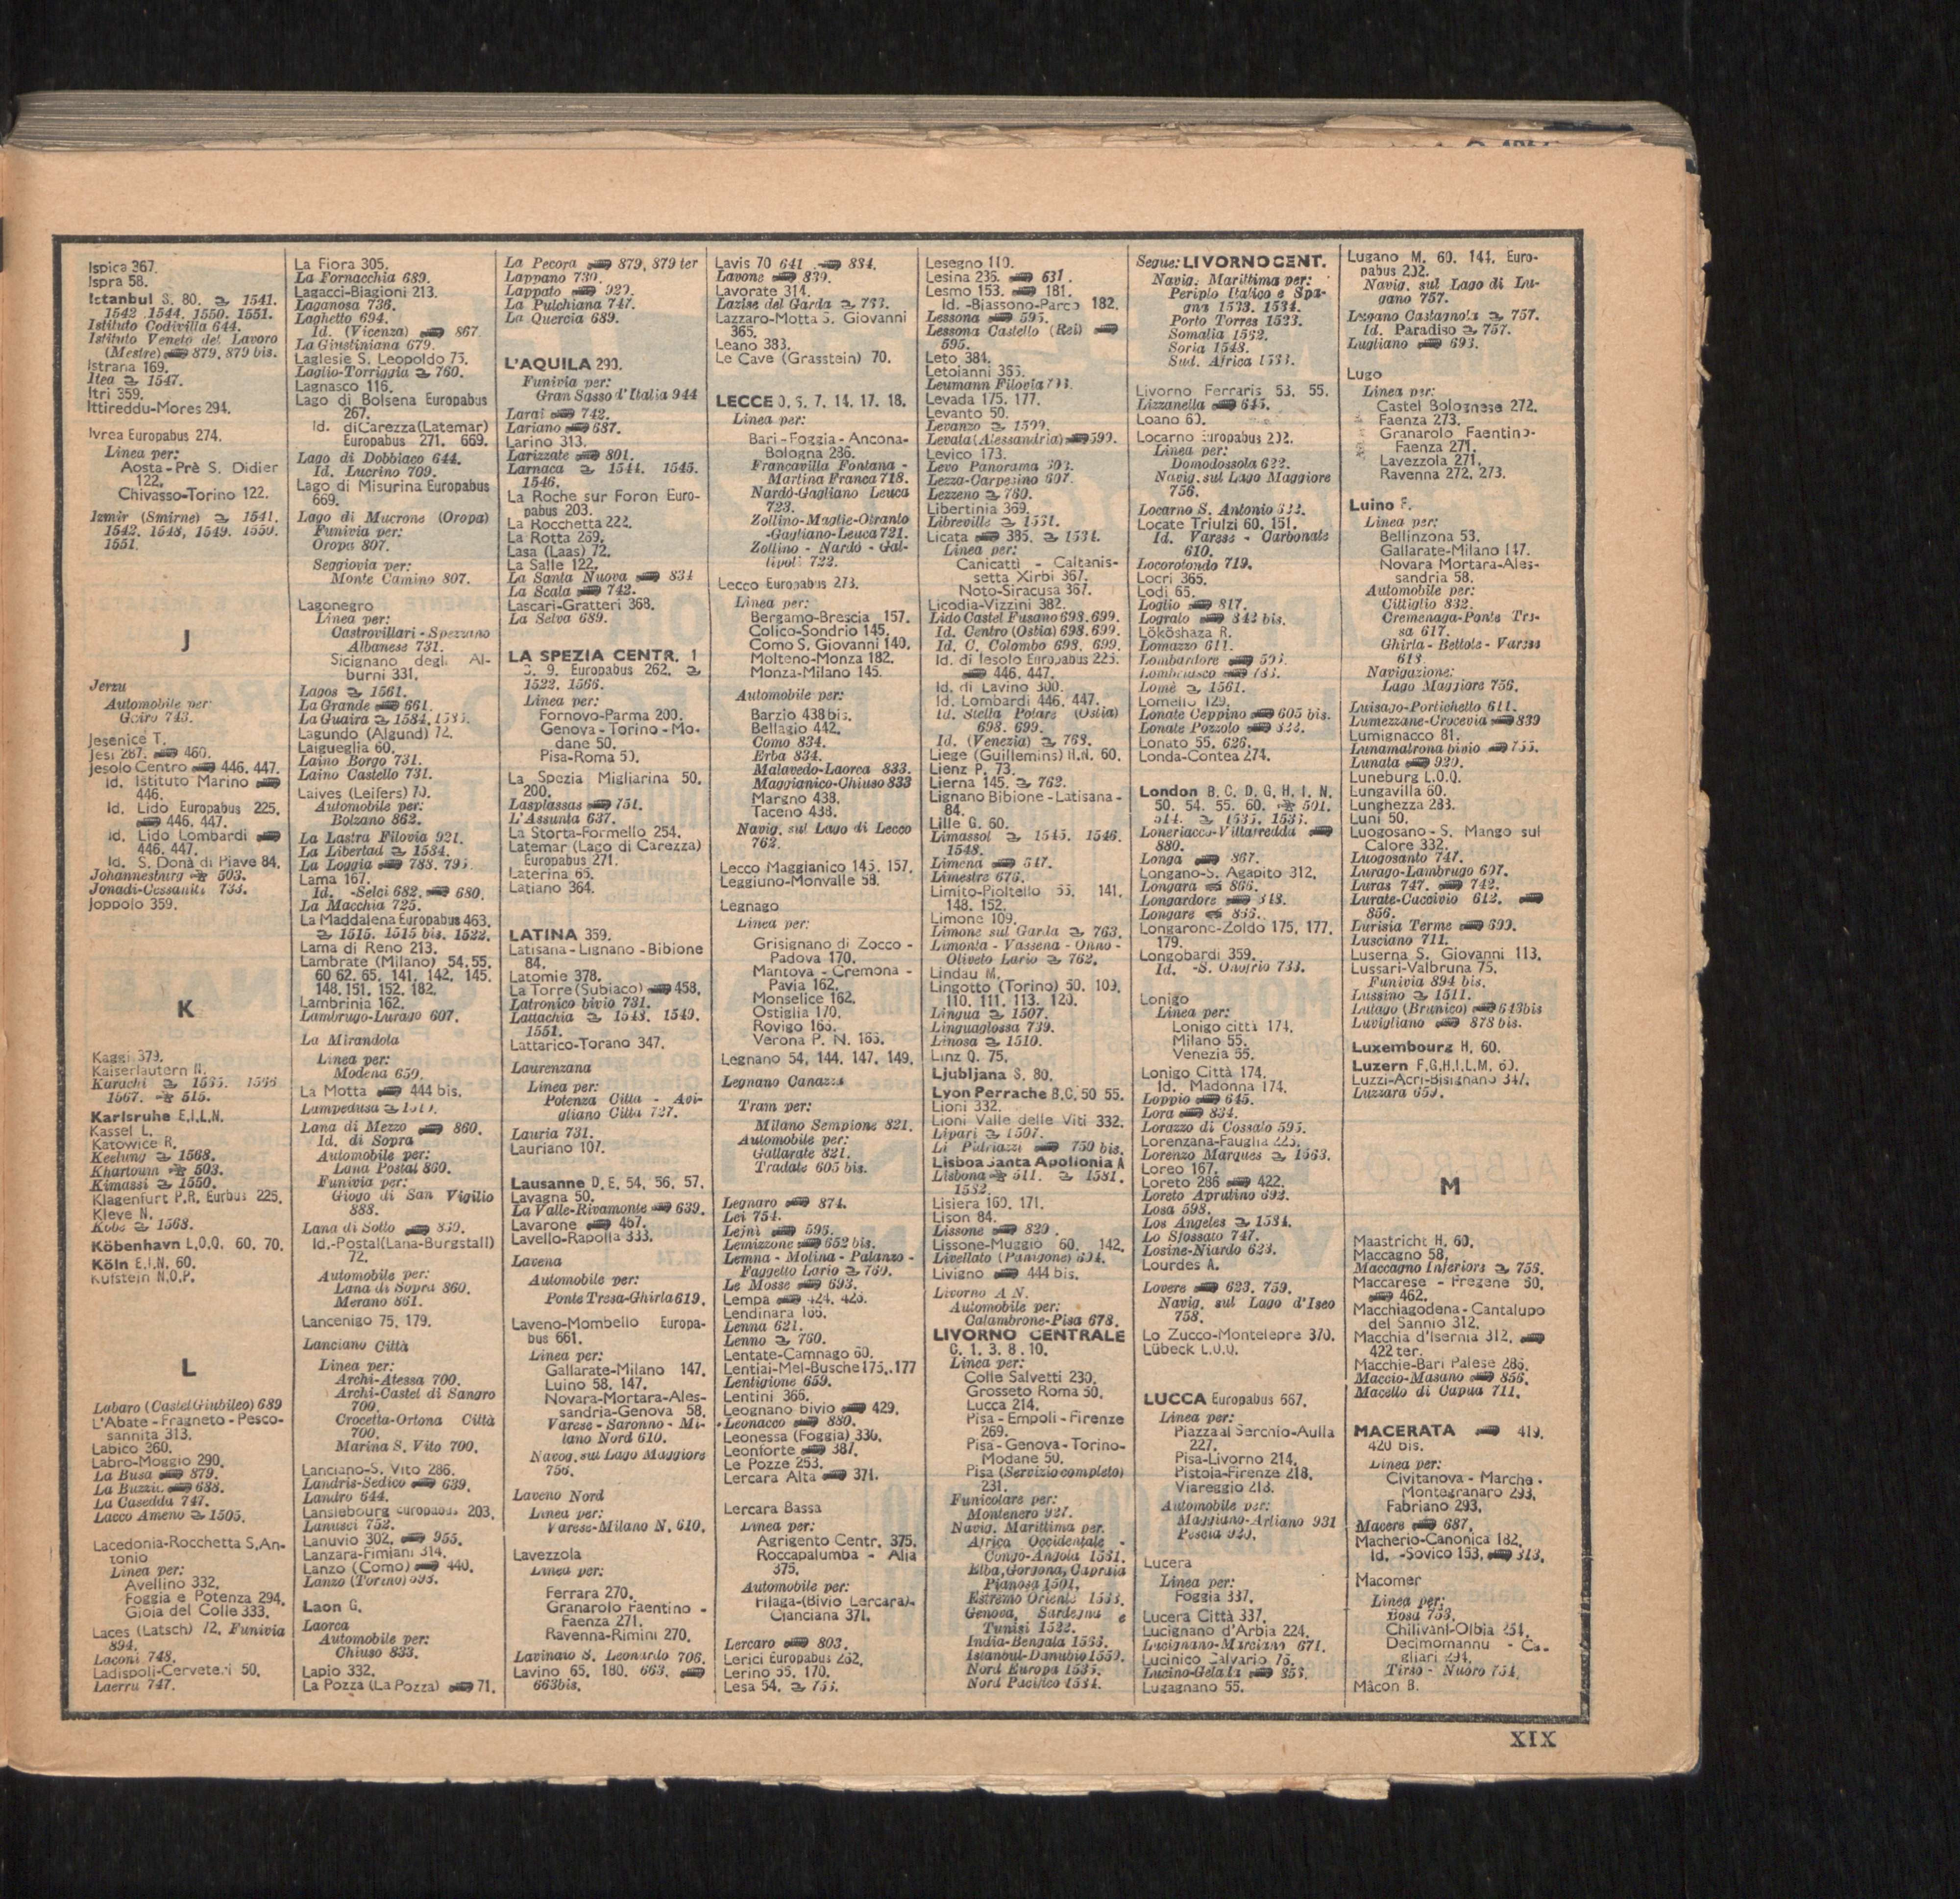 Ispica 367.
Ispra 58.
Istanbul S. 80. 1541.
1542. 1544. 1550. 1551.
Istituto Codivilla 644.
Istituto Veneto del Lavoro
(Mestre) 879, 879 bis.
Istrana 169.
Itea 1547.
Itri 359.
Ittireddu-Mores 294.
Ivrea Europabus 274.
Linea per:
Aosta-Prè S. Didier
122.
Chivasso-Torino 122.
Izmir (Smirne) 1541.
1542. 1548, 1549. 1550.
1551.
J
Jerzu
Automobile per:
Gairo 743.
Jesenice T.
Jesi 287. 460.
Jesolo Centro 446. 447.
Id. Istituto Marino
446.
Id. Lido Europabus 225.
446. 447.
Id. Lido Lombardi
446. 447.
Id. S. Donà di Piave 84.
Johannesburg 503.
Jonadi-Cessaniti 733.
Joppolo 359.
K
Kaggi 379.
Kaiserlautern N.
Karachi
1567. 515.
Karlsruhe E.I.L.N.
Kassel L.
Katowice R.
Keelung 1568.
Khartoum 503.
Kimassi 1550.
Klagenfurt P.R. Eurbus 225.
Kleve N.
Kobe 1568.
Köbenhavn L.O.Q. 60. 70.
Köln E.I.N. 60.
Kufstein N.O.P.
L
Labaro (Castel Giubileo) 689
L'Abate - Fragneto - Pesco-
sannita 313.
Labico 360.
Labro-Moggio 290.
La Busa 879.
La Buzzia 688.
La Casedda 747.
Lacco Ameno 1505.
Lacedonia-Rocchetta S.An-
tonio
Linea per:
Avellino 332.
Foggia e Potenza 294.
Gioia del Colle 333.
Laces (Latsch) 72. Funivia
894.
Laconi 748.
Ladispoli-Cerveteri 50.
Laerru 747.
La Fiora 305.
La Fornacchia 689.
Lagacci-Biagioni 213.
Laganosa 736.
Laghetto 694.
Id. (Vicenza) 867.
La Giustiniana 679.
Laglesie S. Leopoldo 75.
Laglio-Torriggia 760.
Lagnasco 116.
Lago di Bolsena Europabus
267.
Id. di Carezza (Latemar)
Europabus 271. 669.
Lago di Dobbiaco 644.
Id. Lucrino 709.
Lago di Misurina Europabus
669.
Lago di Mucrone (Oropa)
Funivia per:
Oropa 807.
Seggiovia per:
Monte Camino 807.
Lagonegro
Linea per:
Castrovillari - Spezzano
Albanese 731.
Sicignano degli Al-
burni 331.
Lagos 1561.
La Grande 661.
La Guaira 1584.
Lagundo (Algund) 72.
Laigueglia 60.
Laino Borgo 731.
Laino Castello 731.
Laives (Leifers) 70.
Automobile per:
Bolzano 862.
La Lastra Filovia 921.
La Libertad 1584.
La Loggia 788. 795.
Lama 167.
Id. -Selci 682. 680.
La Macchia 725.
La Maddalena Europabus 463.
1515. 1515 bis. 1522.
Lama di Reno 213.
Lambrate (Milano) 54.55.
60 62. 65. 141. 142. 145.
148. 151. 152. 182.
Lambrinia 162.
Lambrugo-Lurago 607.
La Mirandola
Linea per:
Modena 650.
La Motta 444 bis.
Lampedusa
Lana di Mezzo 860.
Id. di Sopra
Automobile per:
Lana Postal 860.
Funivia per:
Giogo di San Vigilio
888.
Lana di Sotto
Id.-Postal(Lana-Burgstall)
72.
Automobile per:
Lana di Sopra 860.
Merano 861.
Lancenigo 75, 179.
Lanciano Città
Linea per:
Archi-Atessa 700.
Archi-Castel di Sangro
700.
Crocetta-Ortona Città
700.
Marina S. Vito 700.
Lanciano-S. Vito 286.
Landris-Sedico 639.
Landro 644.
Lanslebourg Europabus 203.
Lanusei 752.
Lanuvio 302. 955.
Lanzara-Fimiani 314.
Lanzo (Como) 440.
Lanzo (Torino) 593.
Laon G.
Laorca
Automobile per:
Chiuso 833.
Lapio 332.
La Pozza (La Pozza) 71.
La Pecora 879, 879 ter
Lappano 730.
Lappato 920.
La Pulchiana 747.
La Quercia 689.
L'AQUILA 290.
Funivia per:
Gran Sasso d'Italia 944
Larai 742.
Lariano 687.
Larino 313.
Larizzate 801.
Larnaca 1544. 1545.
1546.
La Roche sur Foron Euro-
pabus 203.
La Rocchetta 222.
La Rotta 269.
Lasa (Laas) 72.
La Salle 122.
La Santa Nuova 834
La Scala 742.
Lascari-Gratteri 368.
La Selva 689.
LA SPEZIA CENTR. 1
5. 9. Europabus 262.
1522. 1566.
Linea per:
Fornovo-Parma 200.
Genova - Torino - Mo-
dane 50.
Pisa-Roma 50.
La Spezia Migliarina 50.
200.
Lasplassas 751.
L'Assunta 637.
La Storta-Formello 254.
Latemar (Lago di Carezza)
Europabus 271.
Laterina 65.
Latiano 364.
LATINA 359.
Latisana - Lignano - Bibione
84.
Latomie 378.
La Torre (Subiaco) 458.
Latronico bivio 731.
Lattachia 1548. 1549.
1551.
Lattarico-Torano 347.
Laurenzana
Linea per:
Potenza Città - Avi-
gliano Città 727.
Lauria 731.
Lauriano 107.
Lausanne D. E. 54. 56. 57.
Lavagna 50.
La Valle-Rivamonte 639.
Lavarone 467.
Lavello-Rapolla 333.
Lavena
Automobile per:
Ponte Tresa-Ghirla 619.
Laveno-Mombello Europa-
bus 661.
Linea per:
Gallarate-Milano 147.
Luino 58. 147.
Novara-Mortara-Ales-
sandria-Genova 58.
Varese - Saronno - Mi-
lano Nord 610.
Navog. sul Lago Maggiore
756.
Laveno Nord
Linea per:
Varese-Milano N. 610.
Lavezzola
Linea per:
Ferrara 270.
Granarolo Faentino -
Faenza 271.
Ravenna-Rimini 270.
Lavinaio S. Leonardo 706.
Lavino 65. 180. 663.
663bis.
Lavis 70 641 884.
Lavone 839.
Lavorate 314.
Lazise del Garda 763.
Lazzaro-Motta S. Giovanni
365.
Leano 383.
Le Cave (Grasstein) 70.
LECCE 0. 6. 7. 14. 17. 18.
Linea per:
Bari - Foggia - Ancona-
Bologna 286.
Francavilla Fontana -
Martina Franca 718.
Nardò-Gagliano Leuca
723.
Zollino-Maglie-Otranto
-Gagliano-Leuca 721.
Zollino - Nardò - Gal-
lipoli 722.
Lecco Europabus 273.
Linea per:
Bergamo-Brescia 157.
Colico-Sondrio 145.
Como S. Giovanni 140.
Molteno-Monza 182.
Monza-Milano 145.
Automobile per:
Barzio 438 bis.
Bellagio 442.
Como 834.
Erba 834.
Malavedo-Laorca 833.
Maggianico-Chiuso 833
Margno 438.
Taceno 438.
Navig. sul Lago di Lecco
762.
Lecco Maggianico 145. 157.
Leggiuno-Monvalle 58.
Legnago
Linea per:
Grisignano di Zocco -
Padova 170.
Mantova - Cremona -
Pavia 162.
Monselice 162.
Ostiglia 170.
Rovigo 166.
Verona P. N. 166.
Legnano 54, 144. 147. 149.
Legnano Canazza
Tram per:
Milano Sempione 821.
Automobile per:
Gallarate 821.
Tradate 605 bis.
Legnaro 874.
Lei 754.
Lejnì 596.
Lemizzone 652 bis.
Lemna - Molina - Palanzo -
Faggetto Lario 760.
Le Mosse 693.
Lempa 424. 426.
Lendinara 166.
Lenna 621.
Lenno 760.
Lentate-Camnago 60.
Lentiai-Mel-Busche 175. 177
Lentigione 659.
Lentini 366.
Leognano bivio 429.
Leonacco 880.
Leonessa (Foggia) 336.
Leonforte 387.
Le Pozze 253.
Lercara Alta 371.
Lercara Bassa
Linea per:
Agrigento Centr. 375.
Roccapalumba - Alia
375.
Automobile per:
Filaga-(Bivio Lercara)-
Cianciana 371.
Lercaro 803.
Lerici Europabus 262.
Lerino 55. 170.
Lesa 54. 756.
Lesegno 110.
Lesina 236. 631.
Lesmo 153. 181.
Id. -Biassono-Parco 182.
Lessona 595.
Lessona Castello (Rei)
595.
Leto 384.
Letoianni 365.
Leumann Filovia 793.
Levada 175. 177.
Levanto 50.
Levanzo 1509.
Levata (Alessandria) 599.
Levico 173.
Levo Panorama 603.
Lezza-Carpesino 607.
Lezzeno 760.
Libertinia 369.
Libreville 1561.
Licata 385. 1534.
Linea per:
Canicattì - Caltanis-
setta Xirbi 367.
Noto-Siracusa 367.
Licodia-Vizzini 382.
Lido Castel Fusano 698. 699.
Id. Centro (Ostia) 698. 699.
Id. C. Colombo 698. 699.
Id. di Iesolo Europabus 225.
446, 447.
Id. di Lavino 300.
Id. Lombardi 446. 447.
Id. Stella Polare (Ostia)
698. 699.
Id. (Venezia) 768.
Liege (Guillemins) H.N. 60.
Lienz P. 73.
Lierna 145. 762.
Lignano Bibione - Latisana -
84.
Lille G. 60.
Limassol 1545. 1546.
1548.
Limena 547.
Limestre 676.
Limito-Pioltello 55. 141.
148. 152.
Limone 109.
Limone sul Garda 763.
Limonta - Vassena - Onno -
Oliveto Lario 762.
Lindau M.
Lingotto (Torino) 50. 109.
110. 111. 113. 120.
Lingua 1507.
Linguaglossa 739.
Linosa 1510.
Linz Q. 75.
Ljubljana S. 80.
Lyon Perrache B.C. 50 55.
Lioni 332.
Lioni Valle delle Viti 332.
Lipari 1507.
Li Pidriazzi 750 bis.
Lisboa Santa Apolionia A
Lisbona 511. 1581.
1582.
Lisiera 160. 171.
Lison 84.
Lissone 820.
Lissone-Muggiò 60. 142.
Livellato (Panigone) 694.
Livigno 444 bis.
Livorno A N.
Automobile per:
Calambrone-Pisa 678.
LIVORNO CENTRALE
C. 1. 3. 8. 10.
Linea per:
Colle Salvetti 230.
Grosseto Roma 50.
Lucca 214.
Pisa - Empoli - Firenze
269.
Pisa - Genova - Torino-
Modane 50.
Pisa (Servizio completo)
231.
Funicolare per:
Montenero 927.
Navig. Marittima per.
Africa Occidentale -
Congo-Angola 1561.
Elba, Gorgona, Capraia
Pianosa 1501.
Estremo Oriente 1533.
Genova, Sardegna e
Tunisi 1522.
India-Bengala 1566.
Istanbul-Danubio 1550.
Nord Europa 1535.
Nord Pacifico 1534.
Segue: LIVORNO CENT.
Navig. Marittima per:
Periplo Italico e Spa-
gna 1533. 1534.
Porto Torres 1523.
Somalia 1562.
Soria 1548.
Sud. Africa 1563.
Livorno Ferraris 53. 55.
Lizzanella 645.
Loano 60.
Locarno Europabus 202.
Linea per:
Domodossola 622.
Navig. sul Lago Maggiore
756.
Locarno S. Antonio 622.
Locate Triulzi 60. 151.
Id. Varese - Carbonate
610.
Locorotondo 719.
Locri 365.
Lodi 65.
Loglio 817.
Lograto 842 bis.
Lököshaza R.
Lomazzo 611.
Lombardore 593.
Lombriasco 783.
Lomè 1561.
Lomello 129.
Lonate Ceppino 605 bis.
Lonate Pozzolo 822.
Lonato 55. 626.
Londa-Contea 274.
London B. C. D. G. H. I. N.
50. 54. 55. 60. 501.
514. 1535. 1536.
Loneriacco-Villafredda
880.
Longa 867.
Longano-S. Agapito 312.
Longara 866.
Longardore 848.
Longare 866.
Longarone-Zoldo 175, 177.
179.
Longobardi 359.
Id. -S. Onofrio 733.
Lonigo
Linea per:
Lonigo città 174.
Milano 55.
Venezia 55.
Lonigo Città 174.
Id. Madonna 174.
Loppio 645.
Lora 834.
Lorazzo di Cossato 595.
Lorenzana-Fauglia 225.
Lorenzo Marques 1563.
Loreo 167.
Loreto 286 422.
Loreto Aprutino 692.
Losa 598.
Los Angeles 1534.
Lo Sfossato 747.
Losine-Niardo 623.
Lourdes A.
Lovere 623, 759.
Navig. sul Lago d'Iseo
758.
Lo Zucco-Montelepre 370.
Lübeck L.O.Q.
LUCCA Europabus 667.
Linea per:
Piazza al Serchio-Aulla
227.
Pisa-Livorno 214.
Pistoia-Firenze 218.
Viareggio 218.
Automobile per:
Maggiano-Arliano 931
Pescia 929.
Lucera
Linea per:
Foggia 337.
Lucera Città 337.
Lucignano d'Arbia 224.
Lucignano-Marciano 671.
Lucinico Calvario 76.
Lucino-Gelata 856.
Lugagnano 55.
Lugano M. 60. 144. Euro-
pabus 202.
Navig. sul Lago di Lu-
gano 757.
Lugano Castagnola 757.
Id. Paradiso 757.
Lugliano 693.
Lugo
Linea per:
Castel Bolognese 272.
Faenza 273.
Granarolo Faentino-
Faenza 271.
Lavezzola 271.
Ravenna 272, 273.
Luino F.
Linea per:
Bellinzona 53.
Gallarate-Milano 147.
Novara Mortara-Ales-
sandria 58.
Automobile per:
Cittiglio 832.
Cremenaga-Ponte Tre-
sa 617.
Ghirla - Bettole - Varese
618.
Navigazione:
Lago Maggiore 756.
Luisago-Portichetto 611.
Lumezzane-Crocevia 839
Lumignacco 81.
Lunamatrona bivio 755.
Lunata 920.
Luneburg L.O.Q.
Lungavilla 60.
Lunghezza 283.
Luni 50.
Luogosano - S. Mango sul
Calore 332.
Luogosanto 747.
Lurago-Lambrugo 607.
Luras 747. 742.
Lurate-Caccivio 612.
856.
Lurisia Terme 699.
Lusciano 711.
Luserna S. Giovanni 113.
Lussari-Valbruna 75.
Funivia 894 bis.
Lussino 1511.
Lutago (Brunico) 643bis
Luvigliano 878 bis.
Luxembourg H. 60.
Luzern F.G.H.I.L.M. 60.
Luzzi-Acri-Bisignano 347.
Luzzara 659.
M
Maastricht H. 60.
Maccagno 58.
Maccagno Inferiore 756.
Maccarese - Fregene 50.
462.
Macchiagodena - Cantalupo
del Sannio 312.
Macchia d'Isernia 312.
422 ter.
Macchie-Bari Palese 286.
Maccio-Masano 856.
Macello di Capua 711.
MACERATA 419.
420 bis.
Linea per:
Civitanova - Marche -
Montegranaro 293.
Fabriano 293.
Macere 687.
Macherio-Canonica 182.
Id. -Sovico 153. 313.
Macomer
Linea per:
Bosa 753.
Chilivani-Olbia 294.
Decimomannu - Ca-
gliari 294.
Tirso - Nuoro 754.
Mâcon B.
XIX